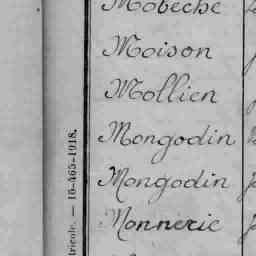 Mobèche
Moison
Mollien
Mongodin
Mongodin
Monnerie
tricole. — 15-465-1918.